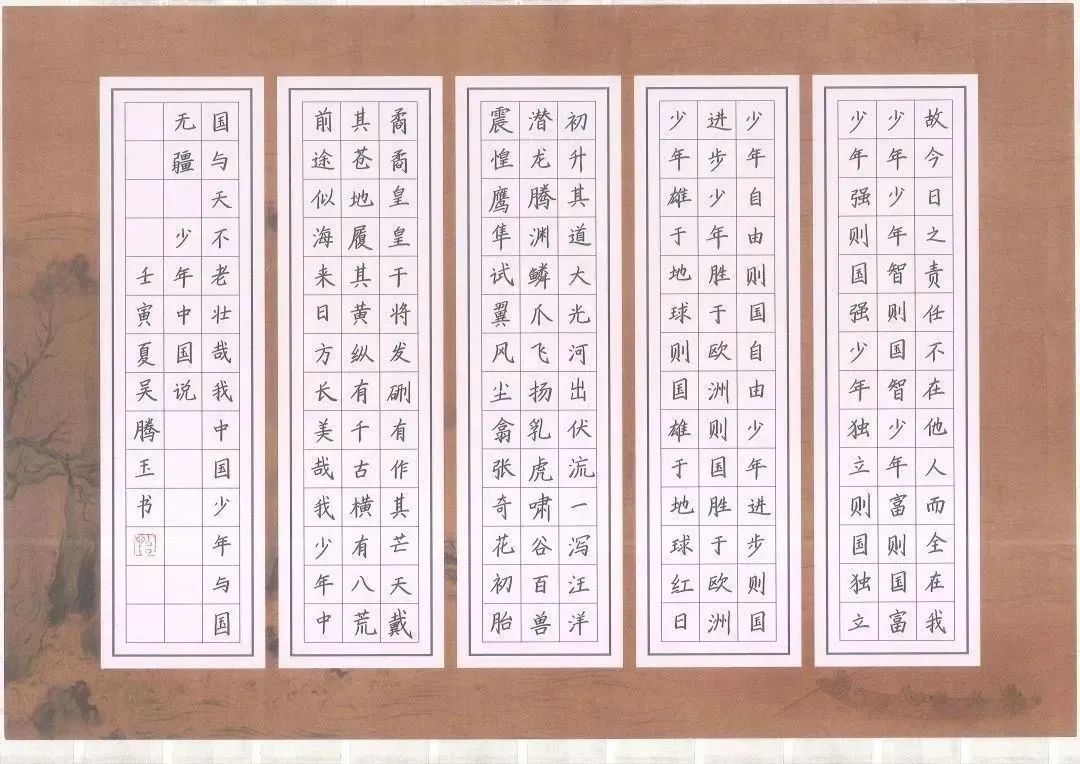 故今日之责任不在他人而全在我
少年少年智则国智少年富则国富
少年强则国强少年独立则国独立
少年自由则国自由少年进步则国
进步少年胜于欧洲则国胜于欧洲
少年雄于地球则国雄于地球红日
初升其道大光河出伏流一泻汪洋
潜龙腾渊鳞爪飞扬乳虎啸谷百兽
震惶鹰隼试翼风尘翕张奇花初胎
矞矞皇皇干将发硎有作其芒天戴
其苍地履其黄纵有千古横有八荒
前途似海来日方长美哉我少年中
国与天不老壮哉我中国少年与国
无疆 少年中国说
壬寅夏吴腾玉书